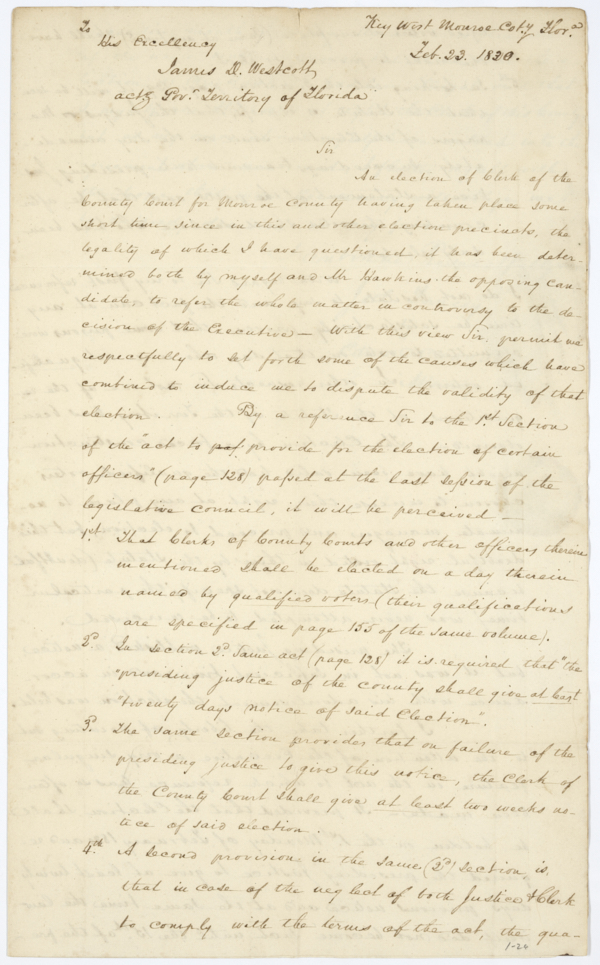 Key West Monroe Coty. Flora.
Feb. 23. 1830.
To
His Excellency
James D. Westcott
actg Govr. Territory of Florida
Sir
An election of Clerk of the
County Court for Monroe County having taken place some
short time since in this and other election precincts, the
legality of which I have questioned, it has been deter-
mined both by myself and Mr Hawkins the opposing can-
didate, to refer the whole matter in controversy to the de-
cision of the Executive — With this view Sir, permit me
respectfully to set forth some of the causes which have
combined to induce me to dispute the validity of that
election. By a reference Sir to the 1st. Section
of the "act to provide for the election of certain
officers" (page 128) passed at the last session of the
legislative council, it will be perceived —
1st. That Clerks of County Courts and other officers therein
mentioned shall be elected on a day therein
named by qualified voters (their qualifications
are specified in page 155 of the same volume).
2d. In section 2d. same act (page 128) it is required that "the
"presiding justice of the county shall give at least
"twenty days notice of said Election".
3d. The same section provides that on failure of the
presiding justice to give this notice, the Clerk of
the County Court shall give at least two weeks no-
tice of said election.
4th. A second provision in the same (2d) section, is,
that in case of the neglect of both Justice & Clerk
to comply with the terms of the act, the qua-
1-24